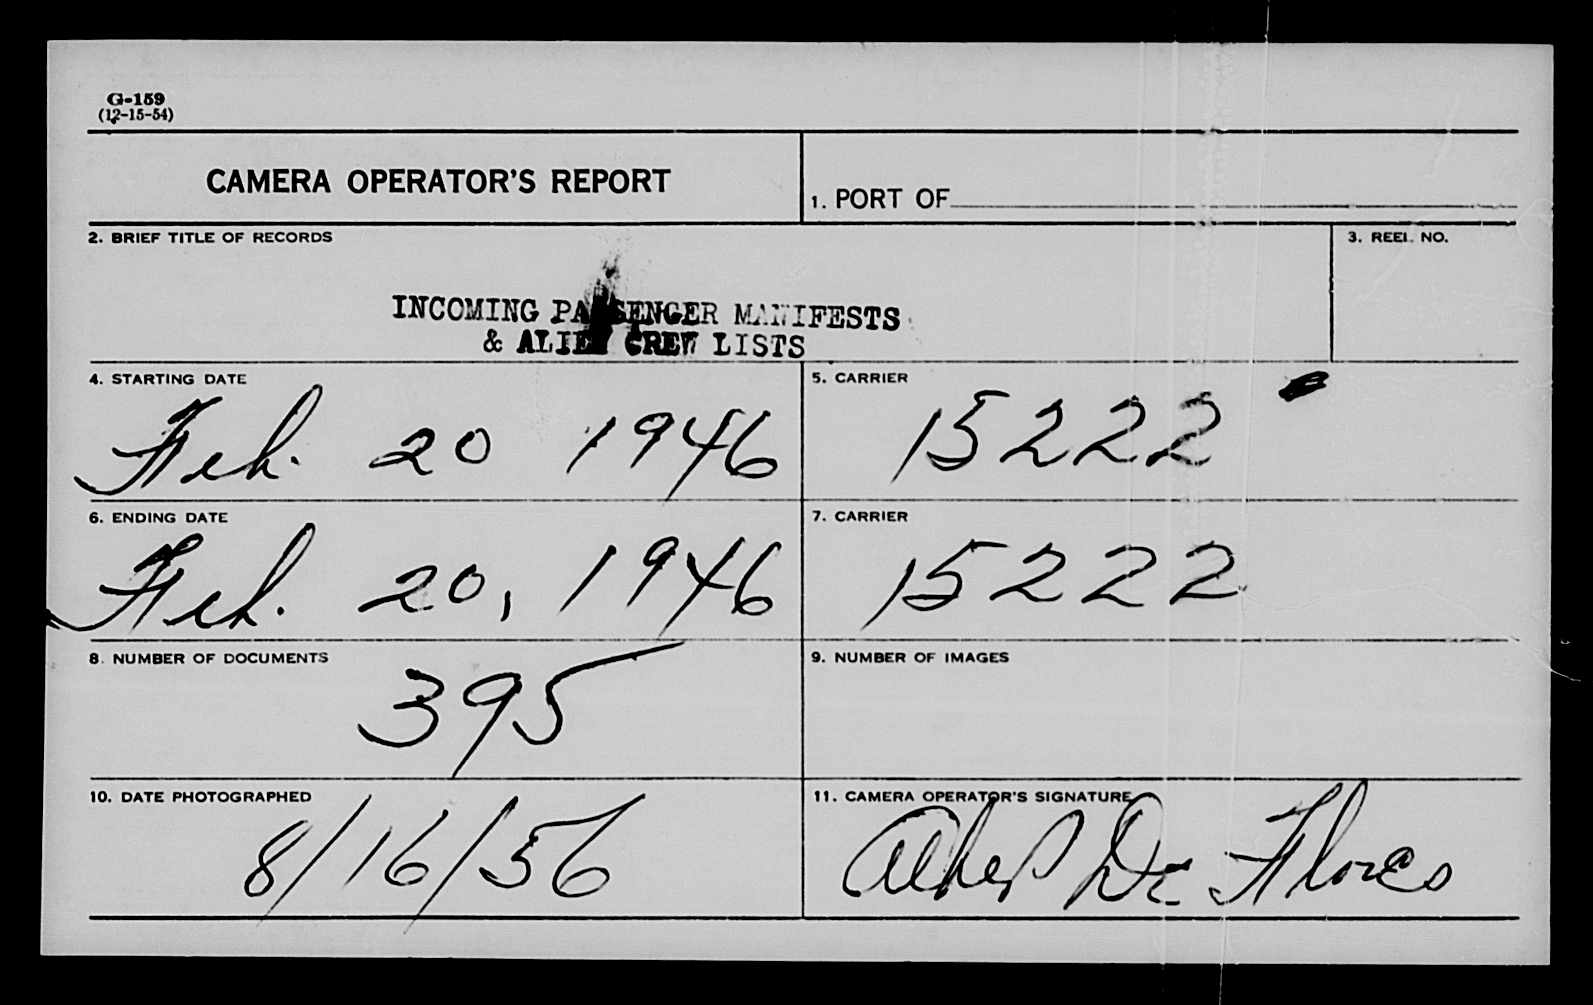 G-159
(12-15-54)
CAMERA OPERATOR'S REPORT
1. PORT OF
2. BRIEF TITLE OF RECORDS
3. REEL NO.
INCOMING PASSENGER MANIFESTS
& ALIEN CREW LISTS
4. STARTING DATE
Feb. 20 1946
5. CARRIER
15222
6. ENDING DATE
Feb. 20, 1946
7. CARRIER
15222
8. NUMBER OF DOCUMENTS
395
9. NUMBER OF IMAGES
10. DATE PHOTOGRAPHED
8/16/56
11. CAMERA OPERATOR'S SIGNATURE
Albert De Flores